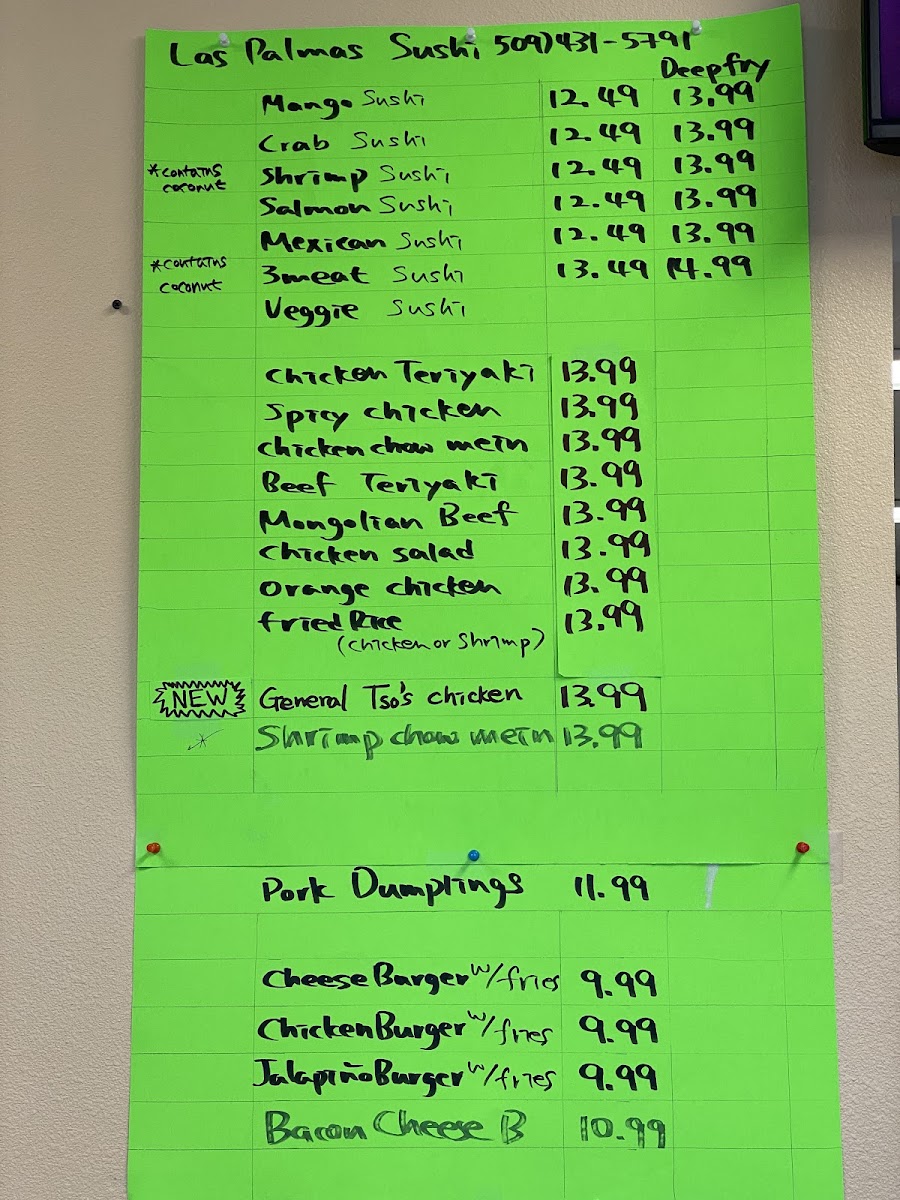 Las Palmas Sushi 509)431-5791
Deepfry
Mango Sushi 12.49 13.99
Crab Sushi 12.49 13.99
*contains coconut Shrimp Sushi 12.49 13.99
Salmon Sushi 12.49 13.99
Mexican Sushi 12.49 13.99
*contains coconut 3meat Sushi 13.49 14.99
Veggie Sushi
Chicken Teriyaki 13.99
Spicy chicken 13.99
chicken chow mein 13.99
Beef Teriyaki 13.99
Mongolian Beef 13.99
chicken salad 13.99
Orange chicken 13.99
fried Rice 13.99
(chicken or Shrimp)
NEW General Tso's chicken 13.99
* Shrimp chow mein 13.99
Pork Dumplings 11.99
Cheese Burger w/fries 9.99
Chicken Burger w/fries 9.99
Jalapiño Burger w/fries 9.99
Bacon Cheese B 10.99